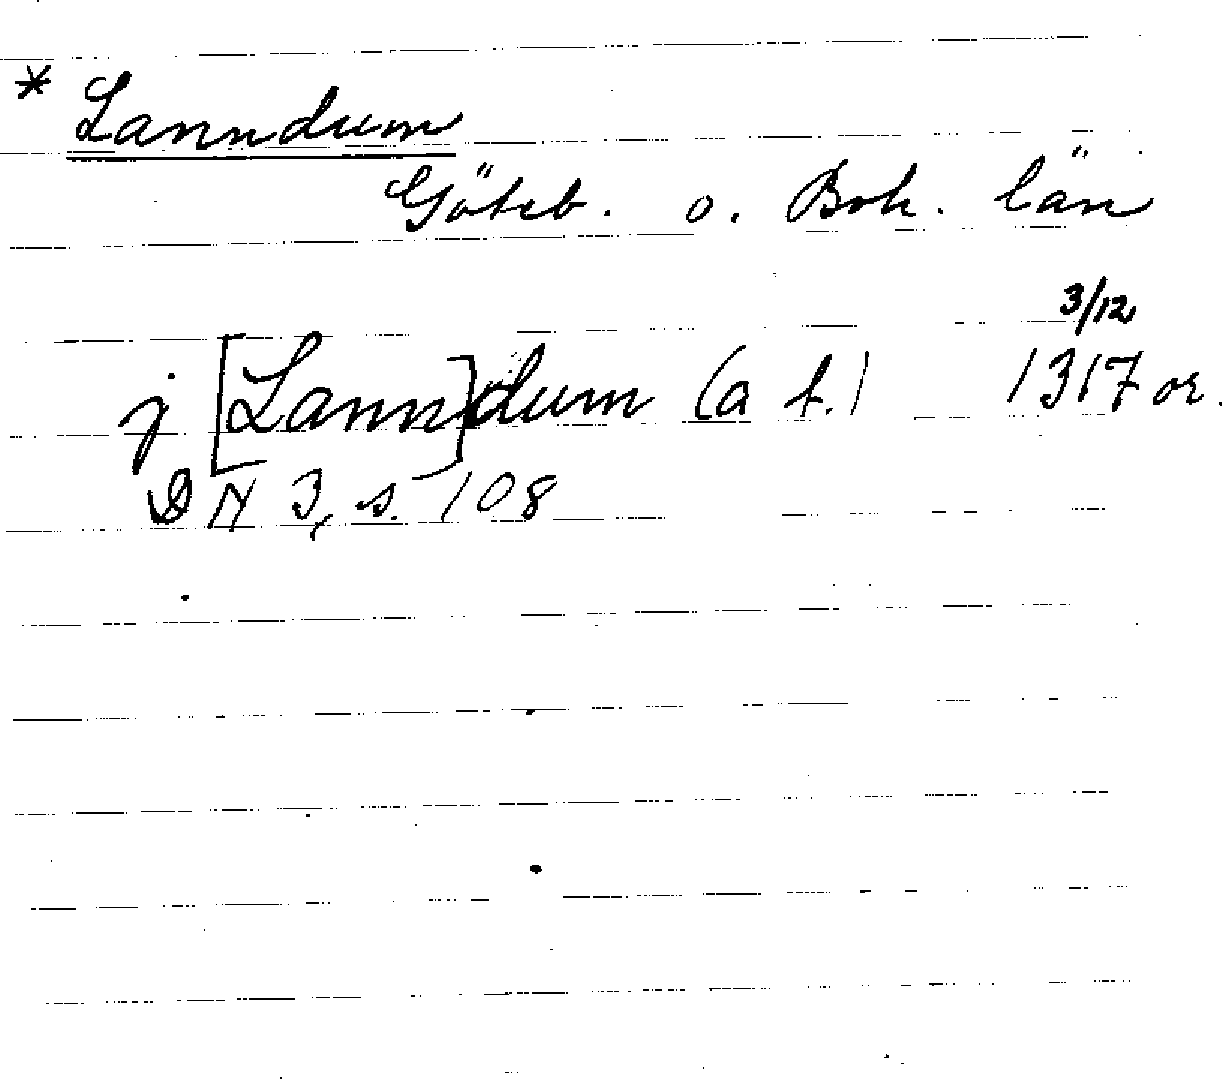 * Lanndum
Göteb. o. Boh. län
3/12
j [Lann]dum (a f.) 1317 or.
DN 3, s. 108